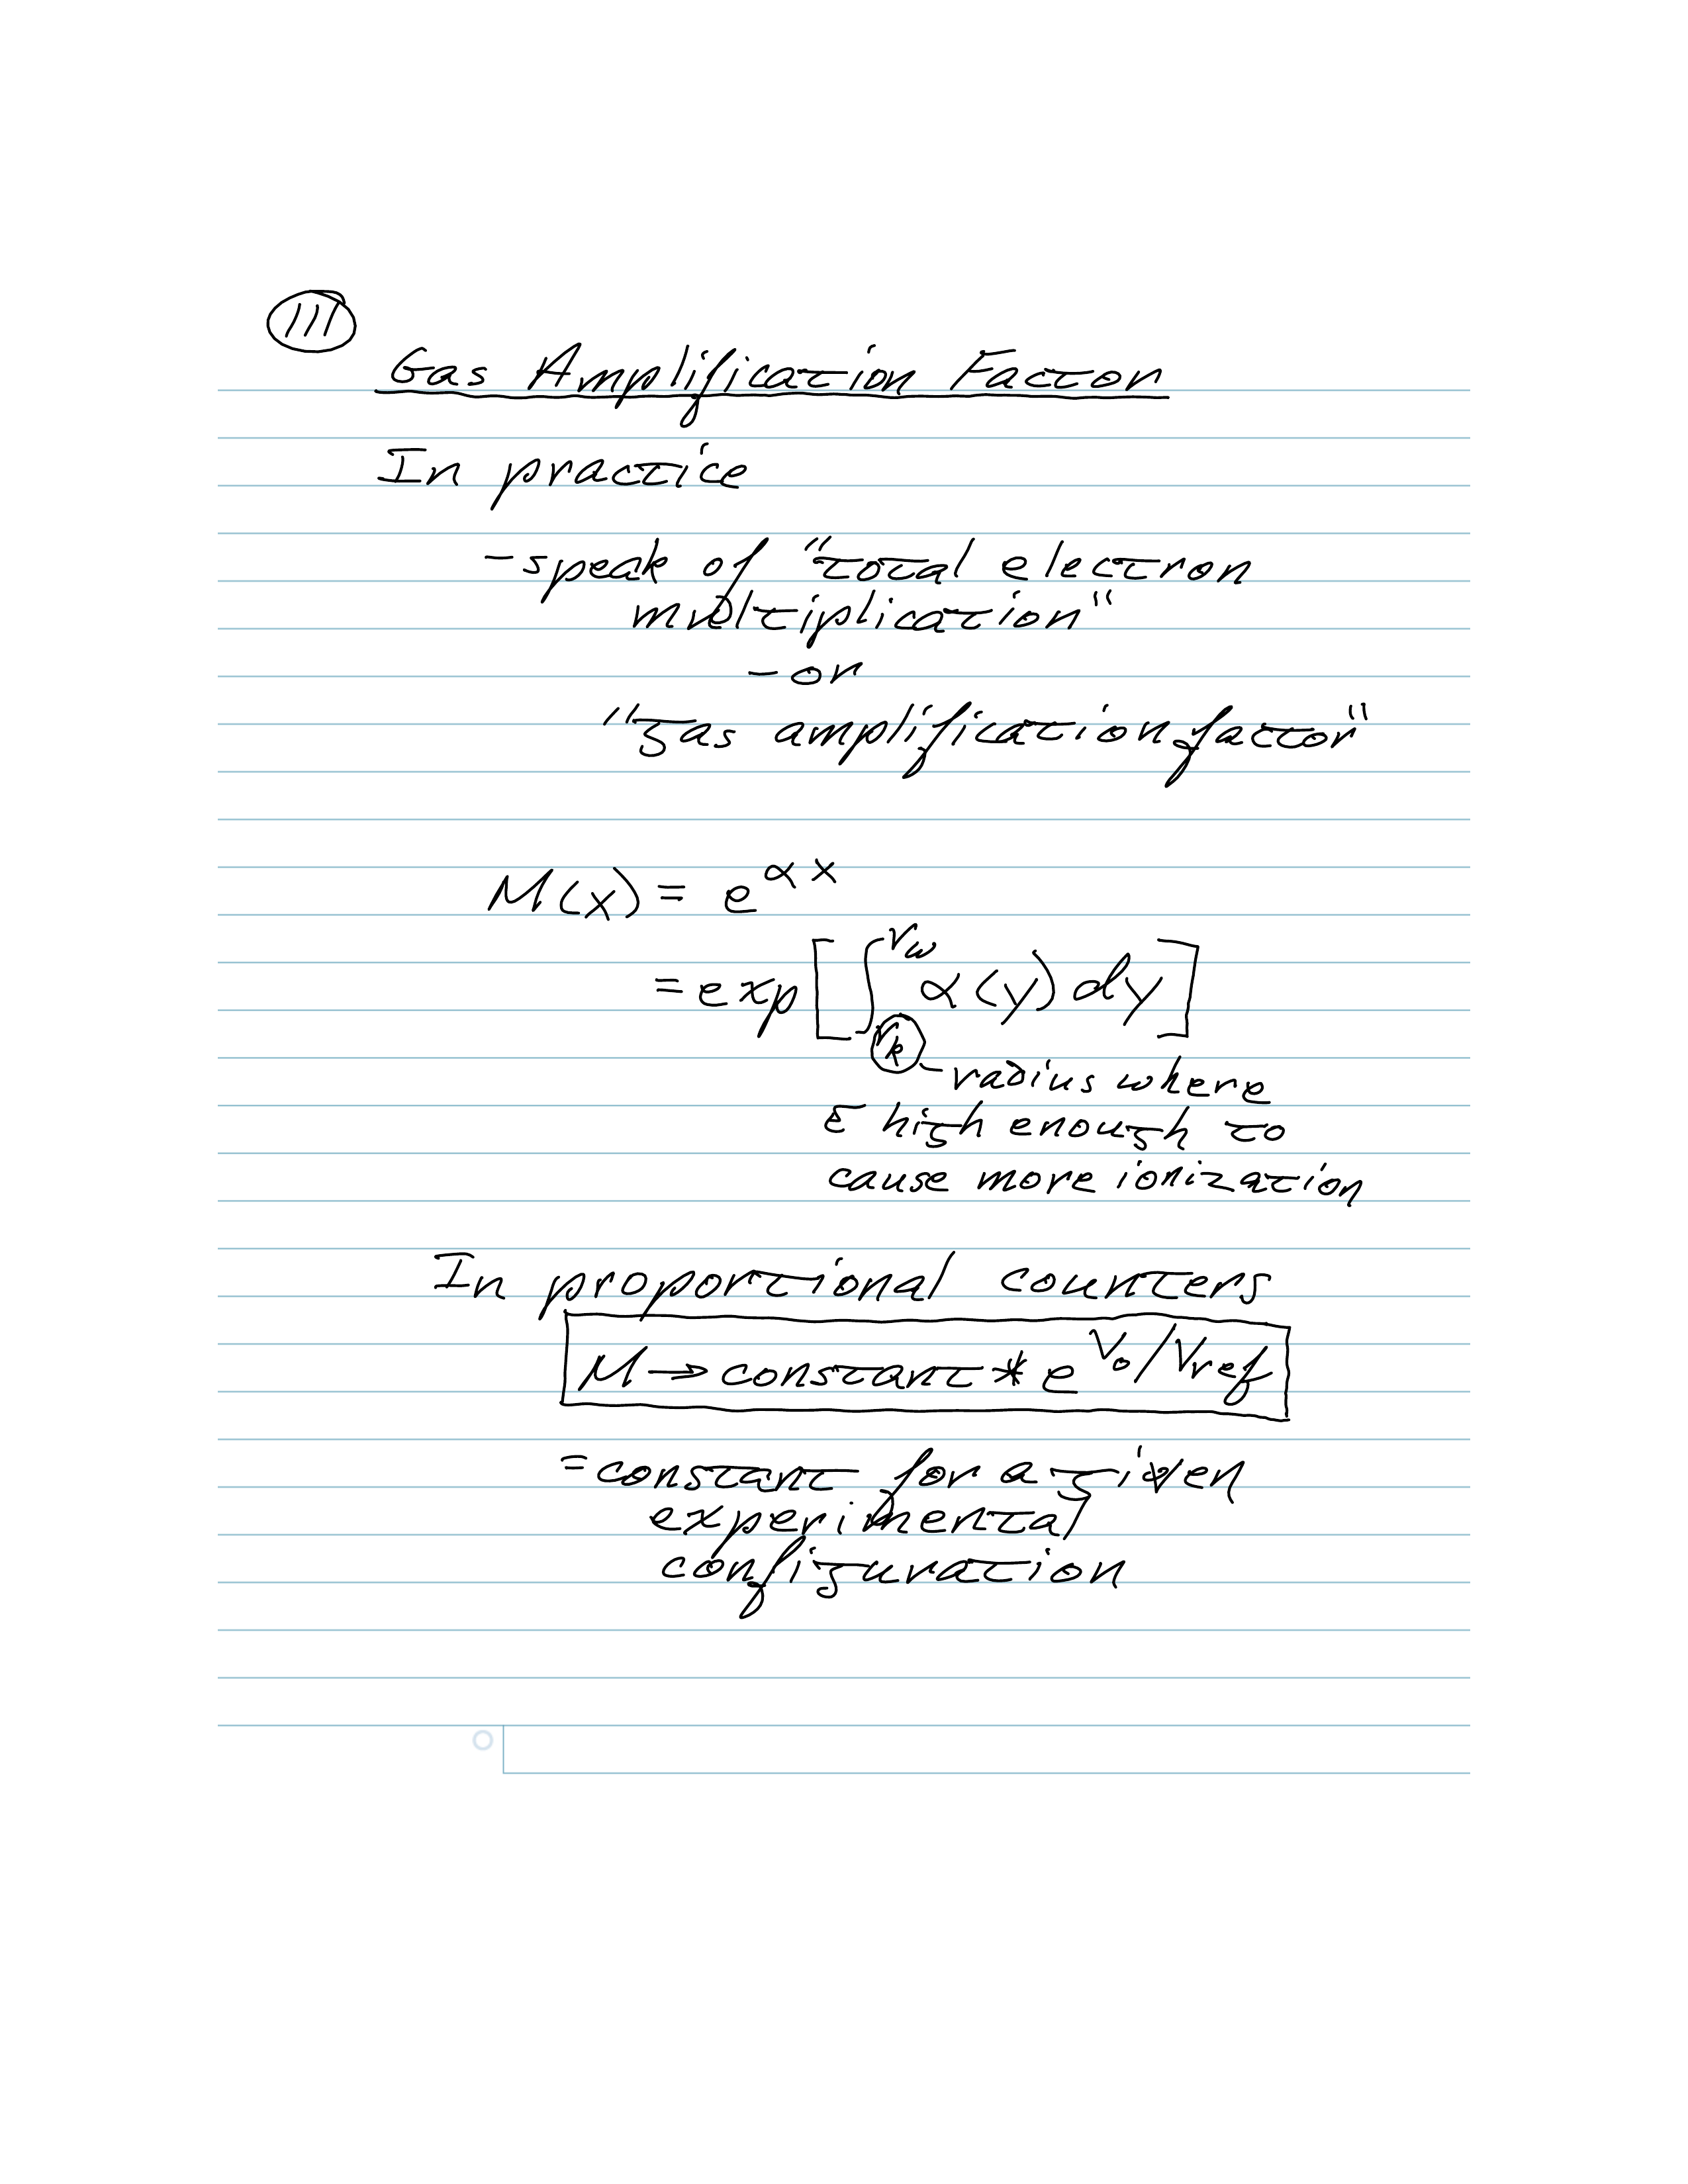 111
Gas Amplification Factor
In practice
- speak of "total electron
multiplication"
- or
"gas amplification factor"
M(x) = e^{αx}
= exp[∫_{r_k}^{r_w} α(y) dy]
radius where
ε high enough to
cause more ionization
In proportional counters
M → constant * e^{V_0/V_ref}
= constant for a given
experimental
configuration